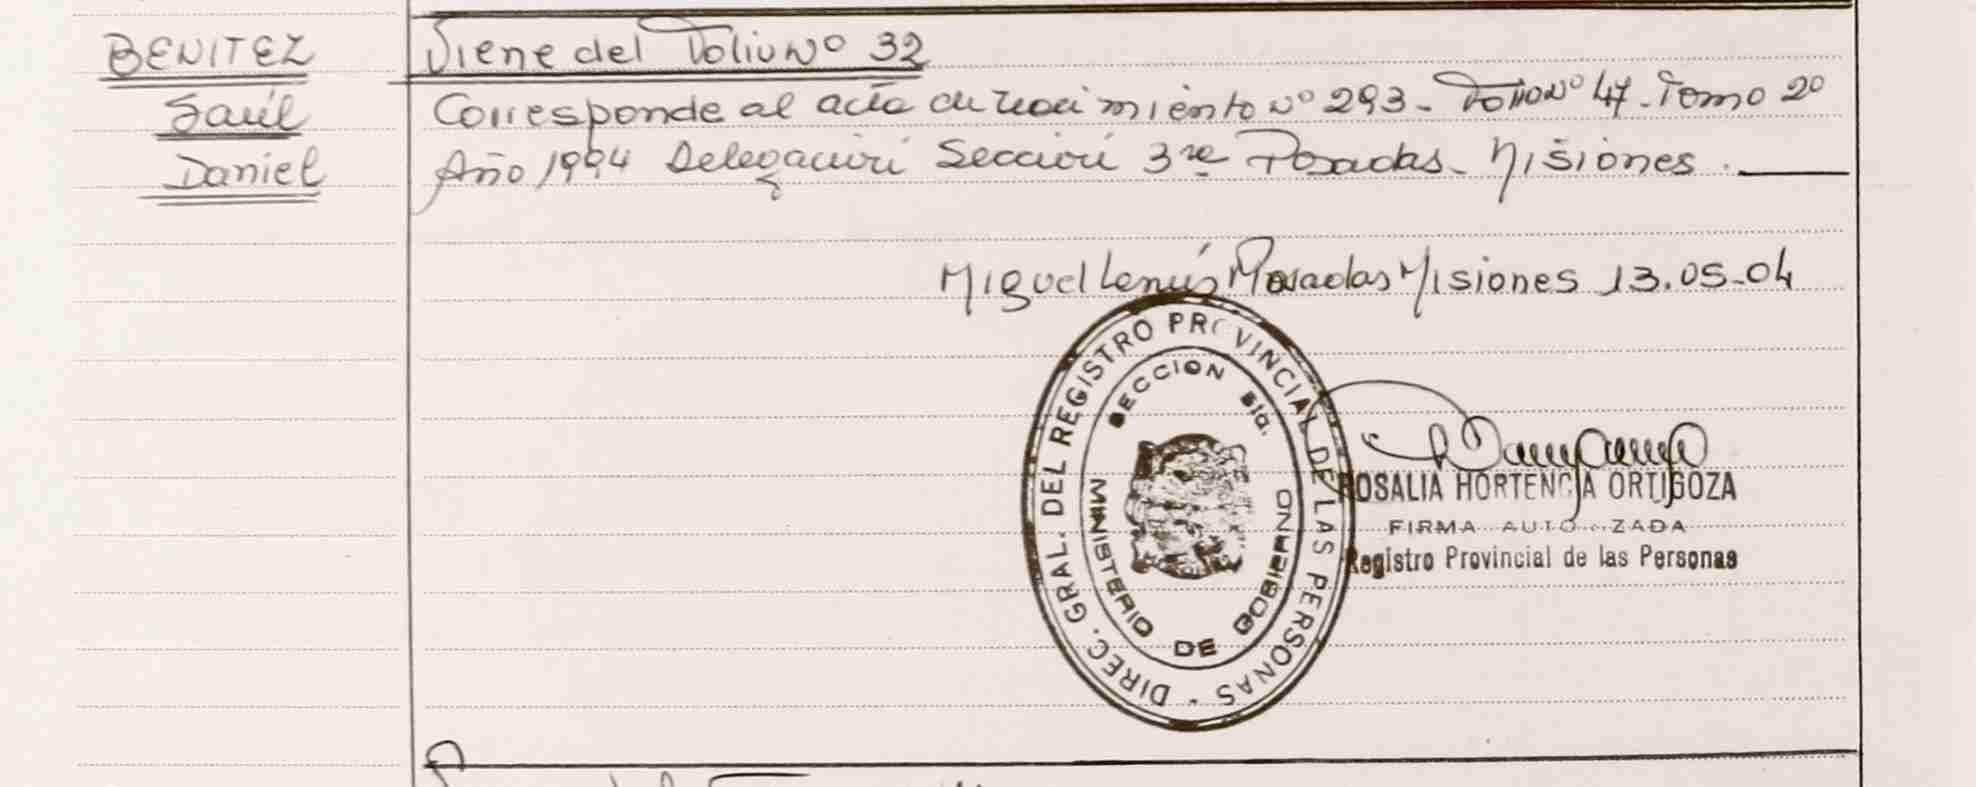 BENITEZ
Saúl
Daniel
Viene del Folio Nº 32
Corresponde al acta de nacimiento nº 293 - Folio Nº 47 - Tomo 2º
Año 1994 Delegación Sección 3ra Posadas - Misiones.
Miguel Lenús Posadas Misiones 13.05-04
DIREC. GRAL. DEL REGISTRO PROVINCIAL DE LAS PERSONAS -
SECCION 5ta.
MINISTERIO DE GOBIERNO
ROSALIA HORTENCIA ORTIGOZA
FIRMA AUTORIZADA
Registro Provincial de las Personas